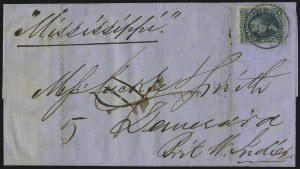 "Mississippi."
Smith
5 Demerara
Brit W. Indies